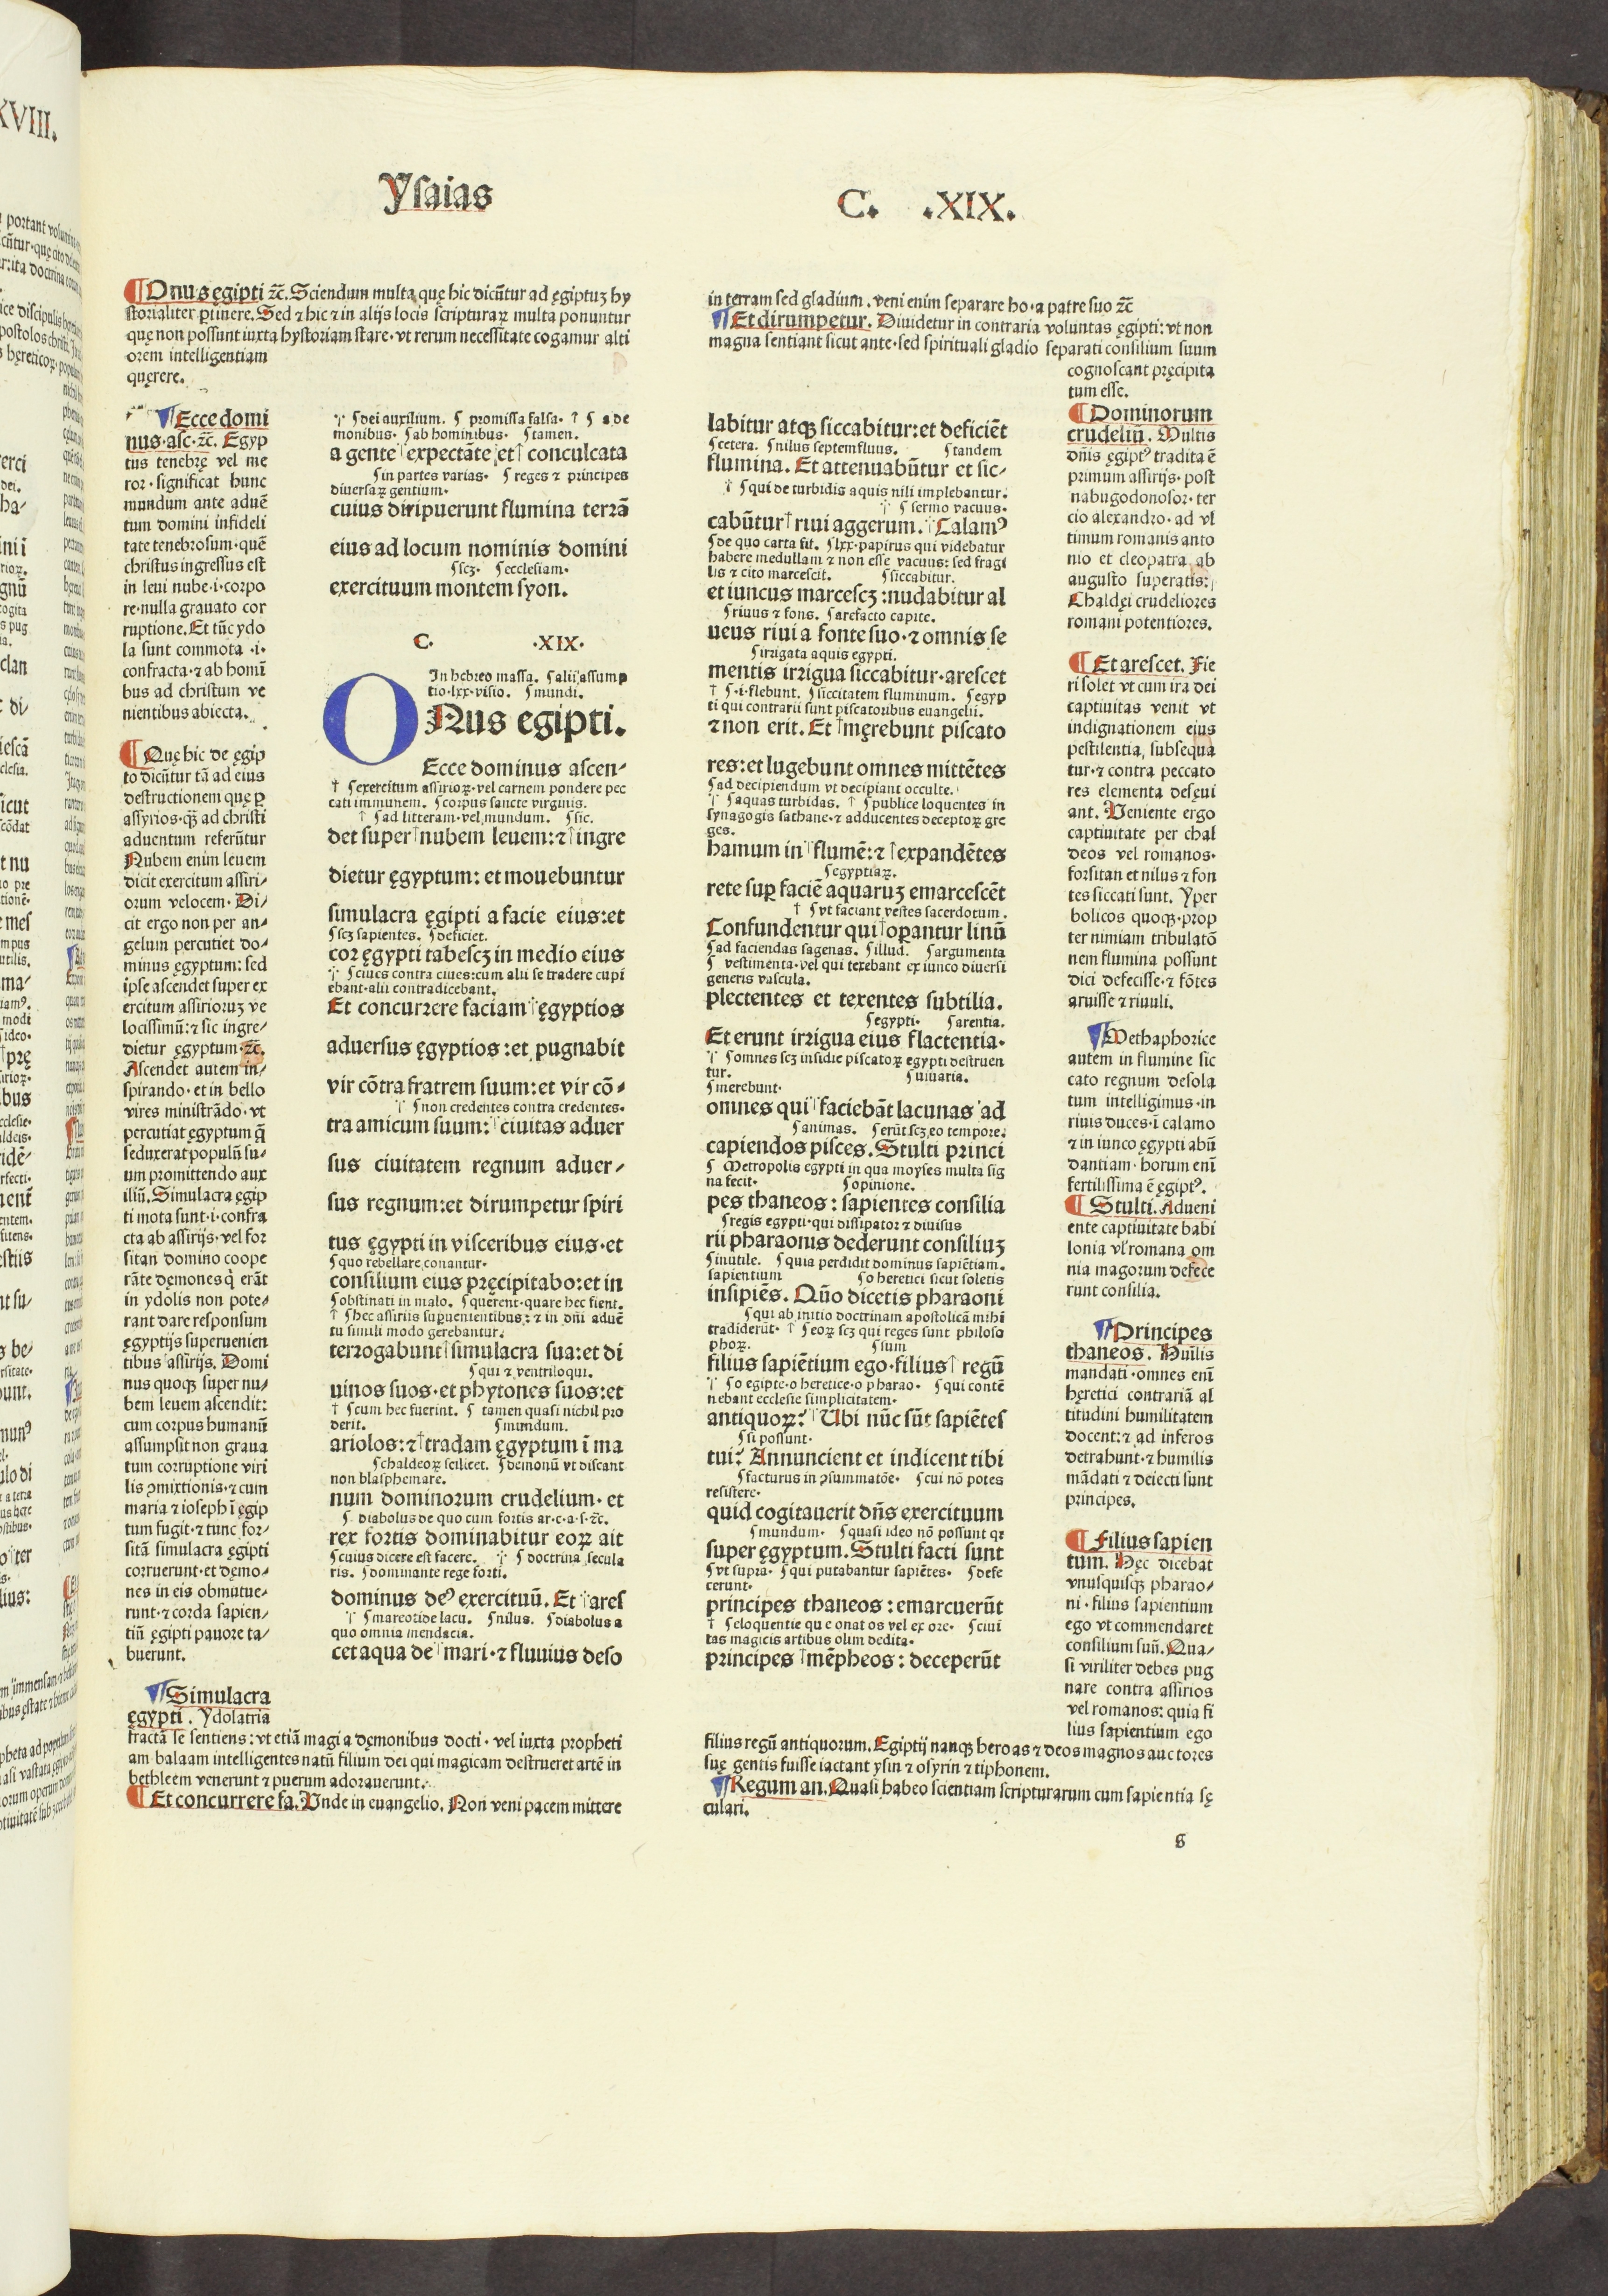 XVIII.
Ysaias
C. .XIX.
¶Onus ęgipti ⁊c̄. Sciendum multa quę hic dicūtur ad ęgiptuꝫ hy
storialiter ꝑtinere. Sed ⁊ hic ⁊ in alijs locis scripturaꝝ multa ponuntur
quę non possunt iuxta hystoriam stare· vt rerum necessitate cogamur alti
orem intelligentiam
quęrere.
¶Ecce domi
nus·asc·⁊c̄. Egyp
tus tenebrę vel me
ror· significat hunc
mundum ante aduē
tum domini infideli
tate tenebrosum·quē
christus ingressus est
in leui nube·i·corpo
re·nulla grauato cor
ruptione. Et tūc ydo
la sunt commota ·i·
confracta·⁊ ab homī
bus ad christum ve
nientibus abiecta.
¶Quę hic de ęgip
to dicūtur tā ad eius
destructionem quę ꝑ
assyrios·qꝫ ad christi
aduentum referūtur
Nubem enim leuem
dicit exercitum assiri/
orum velocem· Di/
cit ergo non per an/
gelum percutiet do/
minus ęgyptum: sed
ipse ascendet super ex
ercitum assirioruꝫ ve
locissimū: ⁊ sic ingre/
dietur ęgyptum·⁊c̄.
Ascendet autem in/
spirando· et in bello
vires ministrādo· vt
percutiat ęgyptum q̄
seduxerat populū su/
um promittendo aux
iliū. Simulacra ęgip
ti mota sunt·i·confra
cta ab assirijs· vel for
sitan domino coope
rāte dęmones q̇ erāt
in ydolis non pote/
rant dare responsum
ęgyptijs superuenien
tibus assirijs. Domi
nus quoqꝫ super nu/
bem leuem ascendit:
cum corpus humanū
assumpsit non graua
tum corruptione viri
lis ꝯmixtionis·⁊ cum
maria ⁊ ioseph ī ęgip
tum fugit·⁊ tunc for/
sitā simulacra ęgipti
corruerunt·et dęmo/
nes in eis obmutue/
runt·⁊ corda sapien/
tiū ęgipti pauore ta/
buerunt.
¶Simulacra
ęgypti. Ydolatria
fractā se sentiens: vt etiā magi a dęmonibus docti· vel iuxta propheti
am balaam intelligentes natū filium dei qui magicam destrueret artē in
bethleem venerunt ⁊ puerum adorauerunt.
¶Et concurrere fa. Vnde in euangelio. Non veni pacem mittere
∵ ſdei auxilium. ſ promissa falsa· † ſ a de
monibus· ſab hominibus· ſtamen.
a gente expectāte et conculcata
ſin partes varias· ſ reges ⁊ principes
diuersaꝝ gentium·
cuius diripuerunt flumina terrā
eius ad locum nominis domini
ſscꝫ· ſecclesiam·
exercituum montem syon.
C. ·XIX·
In hebreo massa. ſalii assump
tio·lxx·visio. ſmundi.
ONus egipti.
Ecce dominus ascen/
† ſexercitum assirioꝝ·vel carnem pondere pec
cati immunem. ſcorpus sancte virginis.
† ſad litteram·vel mundum. ſsic.
det super nubem leuem: ⁊ ingre
dietur ęgyptum: et mouebuntur
simulacra ęgipti a facie eius: et
ſscꝫ sapientes. ſdeficiet.
cor ęgypti tabescꝫ in medio eius
∵ ſciues contra ciues: cum alii se tradere cupi
ebant·alii contradicebant.
Et concurrere faciam ęgyptios
aduersus ęgyptios: et pugnabit
vir cōtra fratrem suum: et vir cō/
∵ ſnon credentes contra credentes·
tra amicum suum: ciuitas aduer
sus ciuitatem regnum aduer/
sus regnum: et dirumpetur spiri
tus ęgypti in visceribus eius·et
ſquo rebellare conantur·
consilium eius pręcipitabo: et in
ſobstinati in malo. ſquerent·quare hec fient.
† ſhec assiriis superuenientibus: ⁊ in dn̄i aduē
tu simili modo gerebantur.
terrogabunt simulacra sua: et di
ſqui ⁊ ventriloqui.
uinos suos·et phytones suos: et
† ſcum hec fuerint. ſ tamen quasi nichil pro
derit. ſmundum.
ariolos: ⁊ tradam ęgyptum ī ma
ſchaldeoꝝ scilicet. ſdemonū vt discant
non blasphemare.
num dominorum crudelium· et
ſ diabolus de quo cum fortis ar·c·a·s·⁊c.
rex fortis dominabitur eoꝝ ait
ſcuius dicere est facere. ∵ ſ doctrina secula
ris. ſdominante rege forti.
dominus deꝰ exercituū. Et ares
∵ ſmareotide lacu. ſnilus. ſdiabolus a
quo omnia mendacia.
cet aqua de mari·⁊ fluuius deso
in terram sed gladium. veni enim separare ho·a patre suo ⁊c̄
¶Et dirumpetur. Diuidetur in contraria voluntas ęgipti: vt non
magna sentiant sicut ante·sed spirituali gladio separati consilium suum
cognoscant pręcipita
tum esse.
labitur atqꝫ siccabitur: et deficiēt
ſcetera. ſnilus septemfluus. ſtandem
flumina. Et attenuabūtur et sic/
† ſqui de turbidis aquis nili implebantur.
∵ ſ sermo vacuus·
cabūtur riui aggerum. Calamꝰ
ſde quo carta fit. ſlxx·papirus qui videbatur
habere medullam ⁊ non esse vacuus: sed fragi
lis ⁊ cito marcescit. ſsiccabitur.
et iuncus marcescꝫ: nudabitur al
ſriuus ⁊ fons. ſarefacto capite.
ueus riui a fonte suo·⁊ omnis se
ſirrigata aquis egypti.
mentis irrigua siccabitur·arescet
† ſ·i·flebunt. ſsiccitatem fluminum. ſegyp
ti qui contrarii sunt piscatoribus euangelii.
⁊ non erit. Et męrebunt piscato
res: et lugebunt omnes mittētes
ſad decipiendum vt decipiant occulte.
∵ ſaquas turbidas. † ſpublice loquentes in
synagogis sathane·⁊ adducentes deceptoꝝ gre
ges.
hamum in flumē: ⁊ expandētes
ſegyptiaꝝ.
rete suꝑ faciē aquaruꝫ emarcescēt
† ſvt faciant vestes sacerdotum.
Confundentur qui oꝑantur linū
ſad faciendas sagenas. ſillud. ſargumenta
ſ vestimenta·vel qui texebant ex iunco diuersi
generis vascula.
plectentes et texentes subtilia.
ſegypti· ſarentia.
Et erunt irrigua eius flactentia·
∵ ſomnes scꝫ insidie piscatoꝝ egypti destruen
tur. ſviuaria.
ſmerebunt·
omnes qui faciebāt lacunas ad
ſanimas. ſerūt scꝫ eo tempore.
capiendos pisces. Stulti princi
ſ Metropolis egypti in qua moyses multa sig
na fecit· ſopinione.
pes thaneos: sapientes consilia
ſregis egypti·qui dissipator ⁊ diuisus
rii pharaonis dederunt consiliuꝫ
ſinutile. ſquia perdidit dominus sapiētiam.
sapientium ſo heretici sicut soletis
insipiēs. Quō dicetis pharaoni
ſqui ab initio doctrinam apostolicā mihi
tradiderūt· † ſeoꝝ scꝫ qui reges sunt philoso
phoꝝ. ſsum
filius sapiētium ego·filius regū
∵ ſo egipte·o heretice·o pharao· ſqui contē
nebant ecclesie simplicitatem·
antiquoꝝ? Ubi nūc sūt sapiētes
ſsi possunt·
tui? Annuncient et indicent tibi
ſfacturus in ꝯsummatōe· ſcui nō potes
resistere·
quid cogitauerit dn̄s exercituum
ſmundum· ſquasi ideo nō possunt qꝛ
super ęgyptum. Stulti facti sunt
ſvt supra· ſqui putabantur sapiētes· ſdefe
cerunt·
principes thaneos: emarcuerūt
† ſeloquentie que onat os vel ex ore· ſciui
tas magicis artibus olim dedita·
principes mēpheos: deceperūt
¶Dominorum
crudeliū. Multis
dn̄is ęgiptꝰ tradita ē
primum assirijs· post
nabugodonosor· ter
cio alexandro· ad vl
timum romanis anto
nio et cleopatra ab
augusto superatis:
Chaldęi crudeliores
romani potentiores.
¶Et arescet. Fie
ri solet vt cum ira dei
captiuitas venit vt
indignationem eius
pestilentia, subsequa
tur·⁊ contra peccato
res elementa desęui
ant. Veniente ergo
captiuitate per chal
deos vel romanos·
forsitan et nilus ⁊ fon
tes siccati sunt. Yper
bolicos quoqꝫ·prop
ter nimiam tribulatō
nem flumina possunt
dici defecisse·⁊ fōtes
aruisse ⁊ riuuli.
¶Methaphorice
autem in flumine sic
cato regnum desola
tum intelligimus·in
riuis duces·i calamo
⁊ in iunco ęgypti abū
dantiam· horum enī
fertilissima ē ęgiptꝰ.
¶Stulti. Adueni
ente captiuitate babi
lonia vl' romana om
nia magorum defece
runt consilia.
¶Principes
thaneos. Huīlis
mandati·omnes enī
hęretici contrariā al
titudini humilitatem
docent: ⁊ ad inferos
detrahunt·⁊ humilis
mādati ⁊ deiecti sunt
principes.
¶Filius sapien
tum. Hęc dicebat
vnusquisqꝫ pharao/
ni· filius sapientium
ego vt commendaret
consilium suū. Qua/
si viriliter debes pug
nare contra assirios
vel romanos: quia fi
lius sapientium ego
filius regū antiquorum. Egiptij nanqꝫ heroas ⁊ deos magnos auctores
suę gentis fuisse iactant ysin ⁊ osyrin ⁊ tiphonem.
¶Regum an. Quasi habeo scientiam scripturarum cum sapientia sę
culari.
s